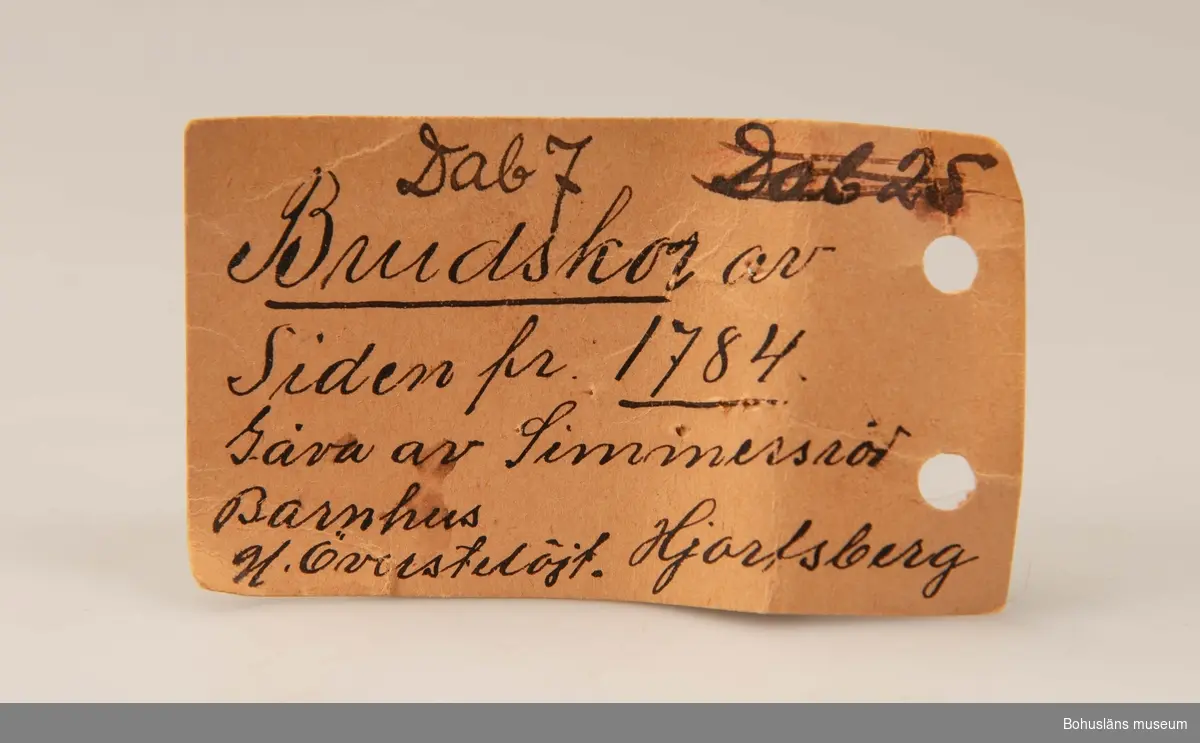 Dab 7 Dab 25
Brudskor av
Siden fr. 1784.
Gåva av Simmersröd
Barnhus
gl. Överstelöjt. Hjortsberg
Bohusläns museum